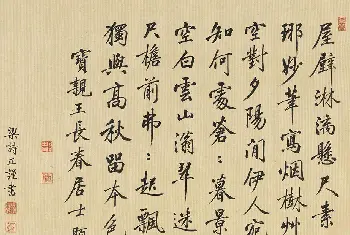 屋壁淋漓懸尺素
那妙筆寫烟樹草
空對夕陽閒伊人宛
知何處蒼:暮景
空白雲山滃翠迷
尺檐前弗:起飄
獨與高秋留本色
寶親王長春居士題
梁詩正謹書